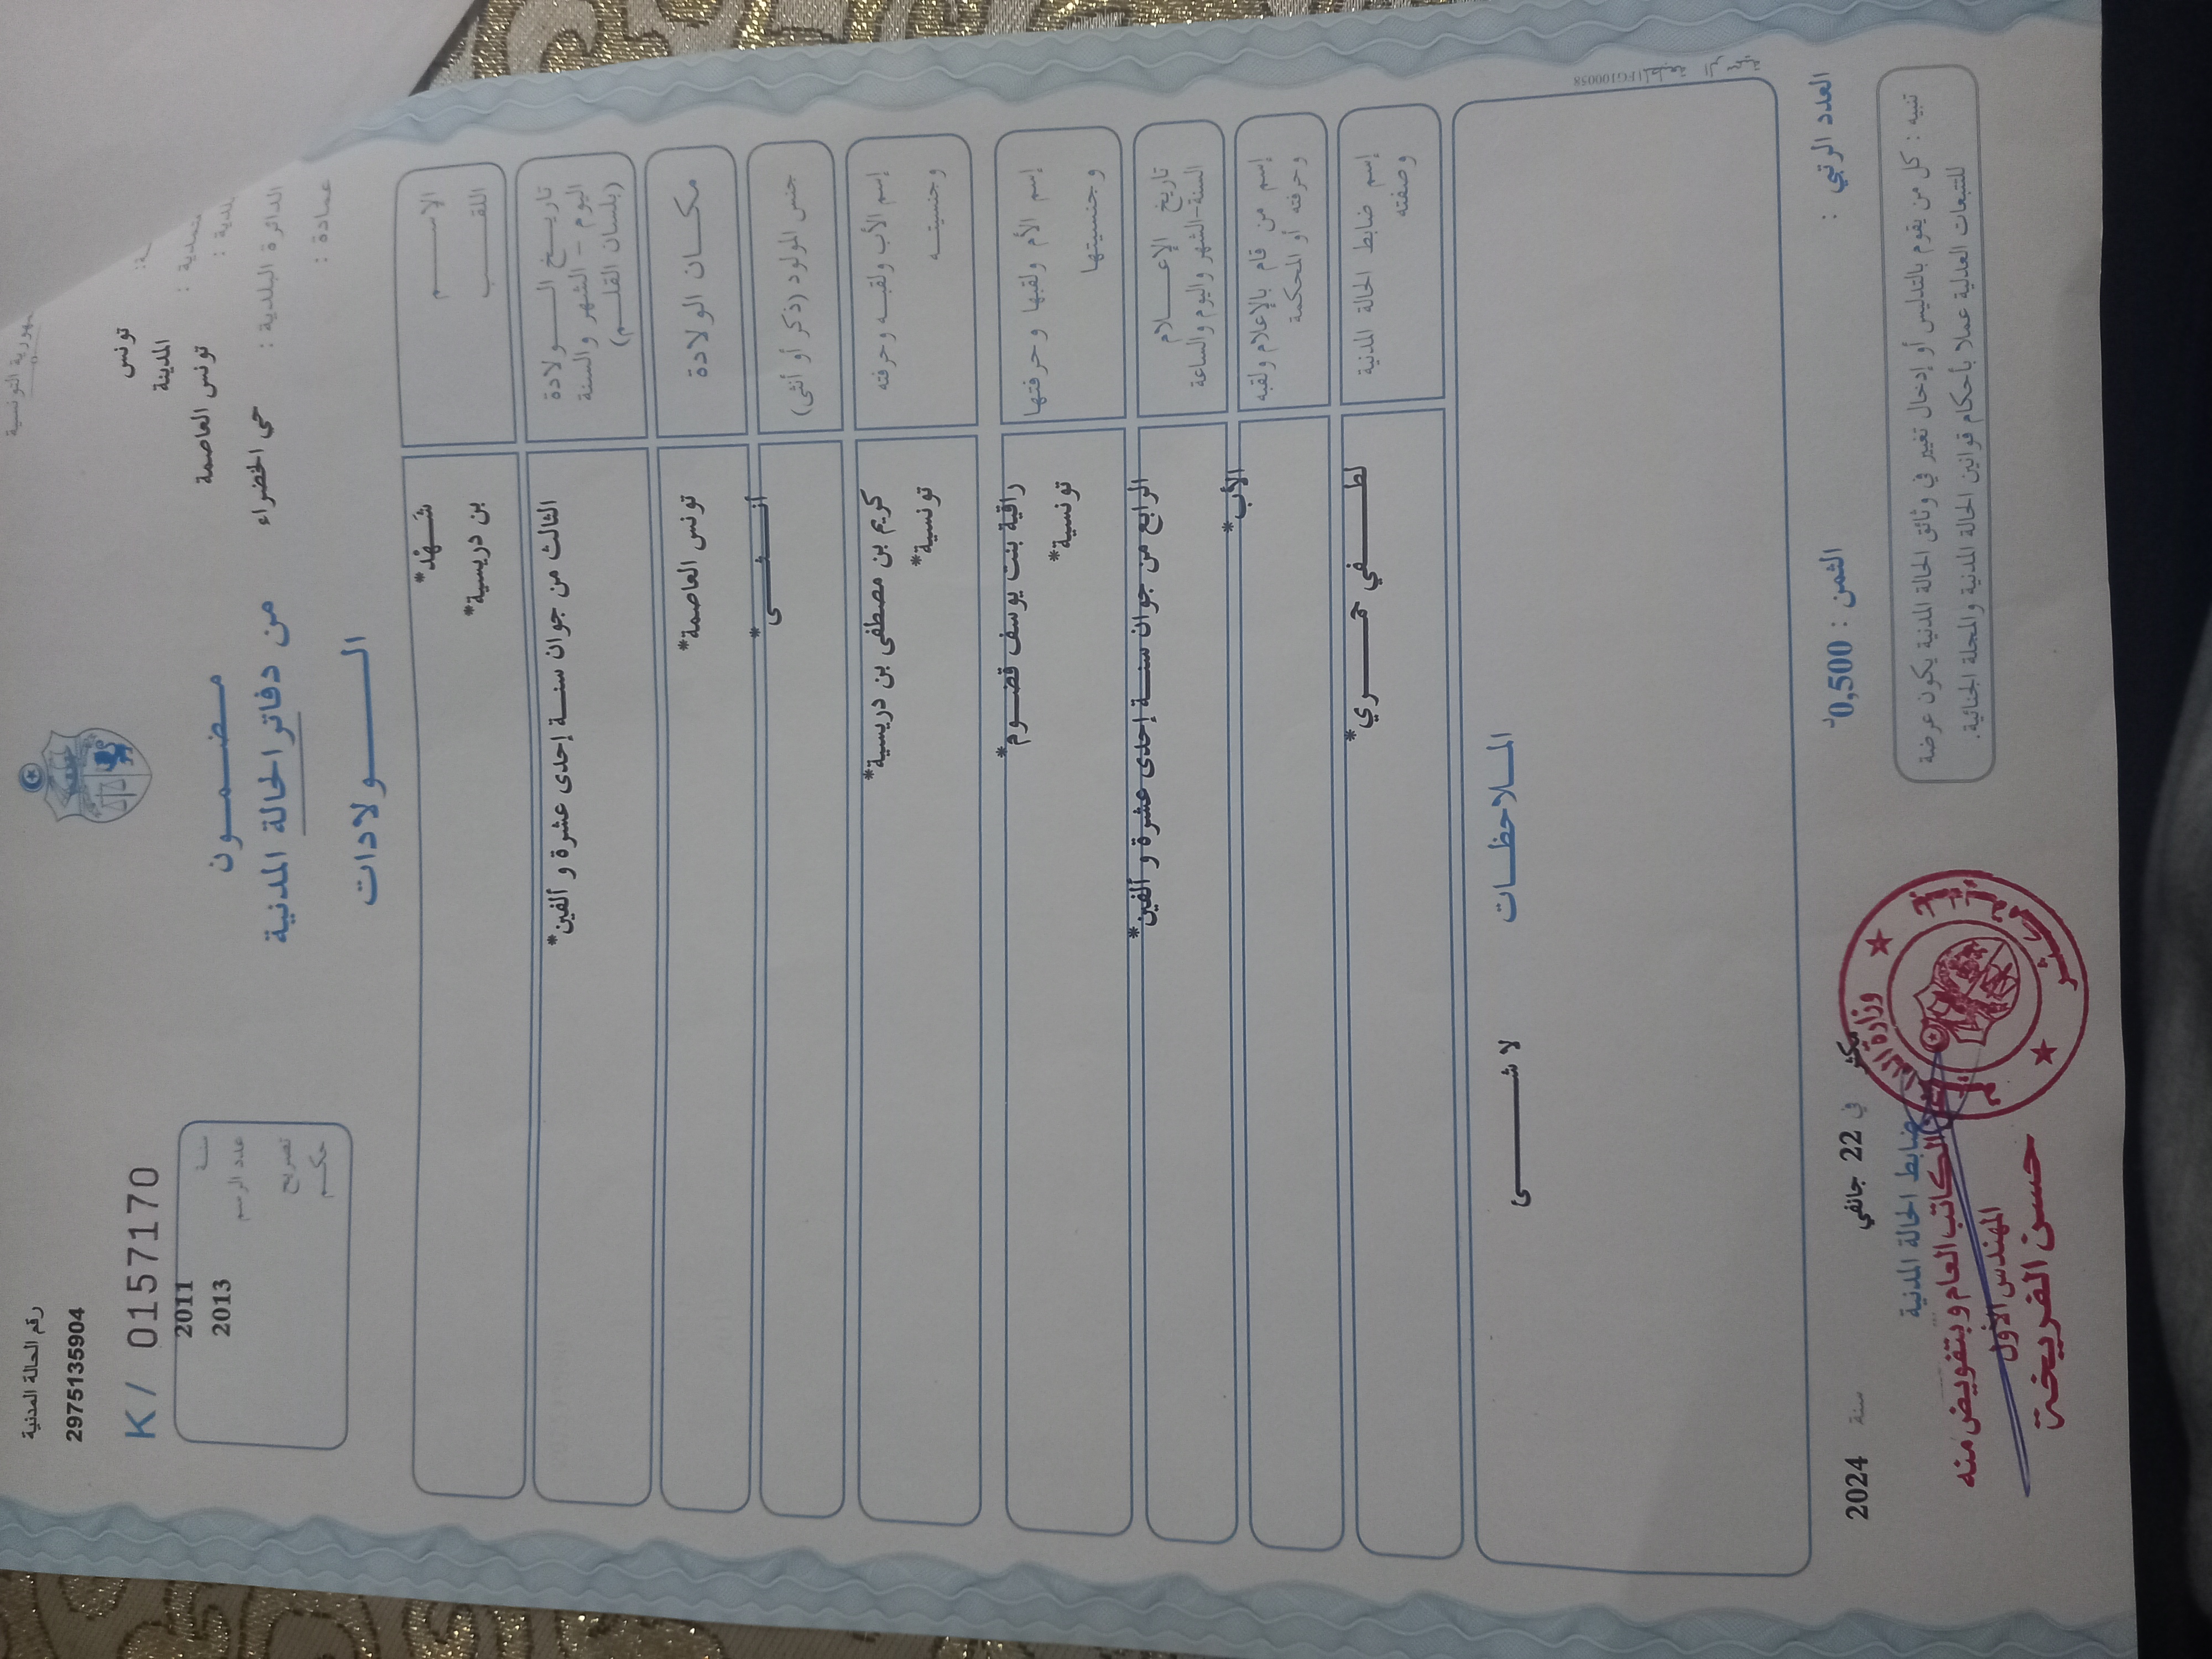 رقم الحالة المدنية
2975135904
K / 0157170
تونس
المدينة
تونس العاصمة
الدائرة البلدية : حي الخضراء
عمادة :
2011 سنة
2013 عدد الرسم
تصريح
حكم
مضمون
من دفاتر الحالة المدنية
الولادات
الاسم شَهْد*
اللقب بن دريسية*
تاريخ الولادة
اليوم - الشهر والسنة
(بلسان القلم)
الثالث من جوان سنة إحدى عشرة و ألفين*
مكان الولادة تونس العاصمة*
جنس المولود (ذكر أو أنثى) أنثى*
إسم الأب ولقبه وحرفته كريم بن مصطفى بن دريسية*
وجنسيته تونسية*
إسم الأم ولقبها وحرفتها راقية بنت يوسف قضوم*
وجنسيتها تونسية*
تاريخ الإعلام
السنة-الشهر واليوم والساعة
الرابع من جوان سنة إحدى عشرة و ألفين*
إسم من قام بالإعلام ولقبه
وحرفته أو المحكمة
الأب*
إسم ضابط الحالة المدنية
وصفته
لطفي حمري*
الملاحظات
لا شى
العدد الرتبي :
الثمن : 0,500د
في 22 جانفي سنة 2024
ضابط الحالة المدنية
الكاتب العام وبتفويض منه
المهندس الأول
حسن الفريخة
تنبيه : كل من يقوم بالتدليس أو إدخال تغيير في وثائق الحالة المدنية يكون عرضة
للتتبعات العدلية عملا بأحكام قوانين الحالة المدنية والمجلة الجنائية.